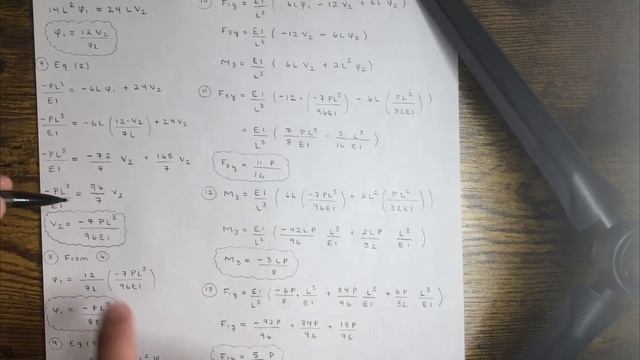 14L²φ₁ = 24LV₂
φ₁ = 12V₂ / 7L
⑦ Eq (2)
-PL³/EI = -6Lφ₁ + 24V₂
-PL³/EI = -6L(12·V₂/7L) + 24V₂
-PL³/EI = -72/7 V₂ + 168/7 V₂
-PL³/EI = 96/7 V₂
V₂ = -7PL³/96EI
⑧ From ⑥
φ₁ = 12/7L (-7PL³/96EI)
φ₁ = -PL
8E
⑨ Eq
10 F₁y = EI/L³ (6Lφ₁ - 12V₂ + 6Lφ₂)
F₃y = EI/L³ (-12V₂ - 6Lφ₂)
M₃ = EI/L³ (6LV₂ + 2L²φ₂)
⑪ F₃y = EI/L³ (-12·(-7PL³/96EI) - 6L(PL²/32EI))
= EI/L³ (7/8 PL³/EI - 3/16 L³/EI)
F₃y = 11P/16
⑫ M₃ = EI/L³ (6L(-7PL³/96EI) + 2L²(PL²/32EI))
M₃ = EI/L³ (-42LP/96 L³/EI + 2LP/32 L³/EI)
M₃ = -3LP/8
⑬ F₁y = EI/L³ (-6P/8 · L³/EI + 84P/96 L³/EI + 6P/32 L³/EI)
F₁y = -72P/96 + 84P/96 + 18P/96
F₁y = 5 P